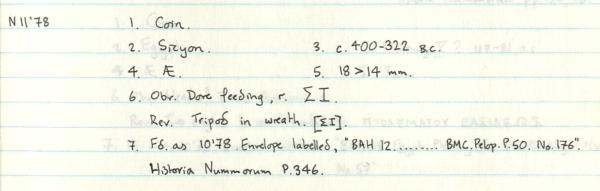 N 11'78 1. Coin.
2. Sicyon. 3. c. 400-322 B.C.
4. Æ. 5. 18 > 14 mm.
6. Obv. Dove feeding, r. ΣΙ.
Rev. Tripod in wreath. [ΣΙ].
7. Fd. as 10'78 Envelope labelled, "BAH 12........ BMC. Pelop. P.50. No. 176".
Historia Nummorum P.346.